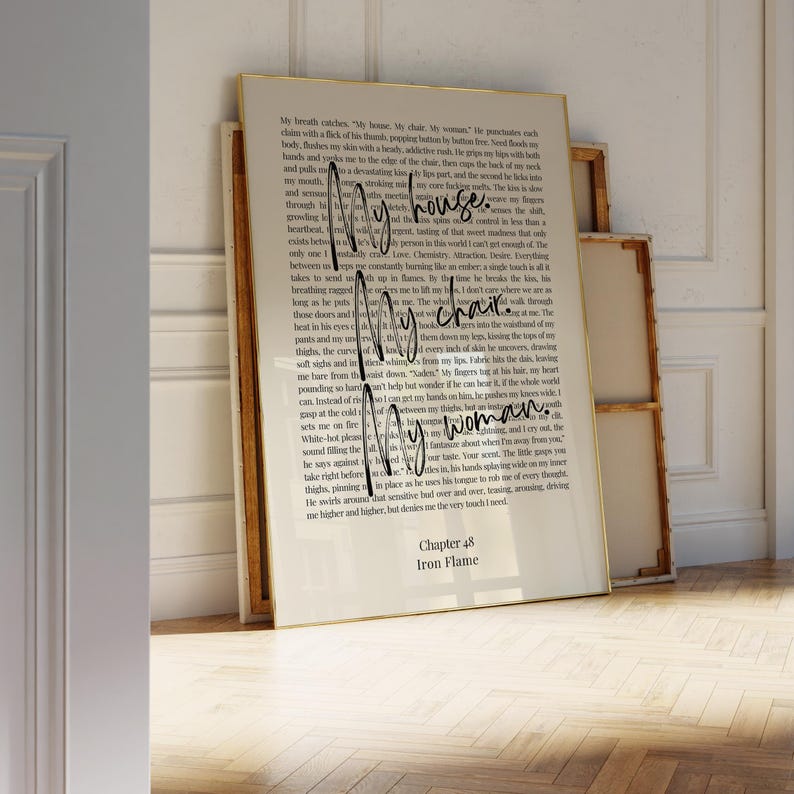 My breath catches. "My house. My chair. My woman." He punctuates each
claim with a flick of his thumb, popping button by button free. Need floods my
body, flushes my skin with a heady, addictive rush. He grips my hips with both
hands and yanks me to the edge of the chair, then cups the back of my neck
and pulls to a devastating kiss. My lips part, and the second he licks into
my mouth, stroking my core fucking melts. The kiss is slow
and meeting weave my fingers
through his He senses the shift,
growling the kiss spins out of control in less than a
heartbeat, urgent, tasting of that sweet madness that only
exists between He's only person in this world I can't get enough of. The
only one I constantly Love. Chemistry. Attraction. Desire. Everything
between us keeps me constantly burning like an ember; a single touch is all it
takes to send us up in flames. By the time he breaks the kiss, his
breathing ragged orders me to lift my I don't care where we are as
long as he puts on me. The whole could walk through
those doors and I at me. The
heat in his eyes hooks fingers into the waistband of my
pants and my them down my legs, kissing the tops of my
thighs, the curve and every inch of skin he uncovers, drawing
soft sighs and whimpers from my lips. Fabric hits the dais, leaving
me bare from waist down. "Xaden." My fingers tug at his hair, my heart
pounding so hard can't help but wonder if he can hear it, if the whole world
can. Instead of so I can get my hands on him, he pushes my knees wide. I
gasp at the cold between my thighs, but an mouth
sets me on fire his tongue to my clit.
White-hot pleasure my lightning, and I cry out, the
sound filling the fantasize about when I'm away from you."
he says against my your taste. Your scent. The little gasps you
take right before you come." settles in, his hands splaying wide on my inner
thighs, pinning in place as he uses his tongue to rob me of every thought.
He swirls around that sensitive bud over and over, teasing, arousing, driving
me higher and higher, but denies me the very touch I need.
My house.
My chair.
My woman.
Chapter 48
Iron Flame